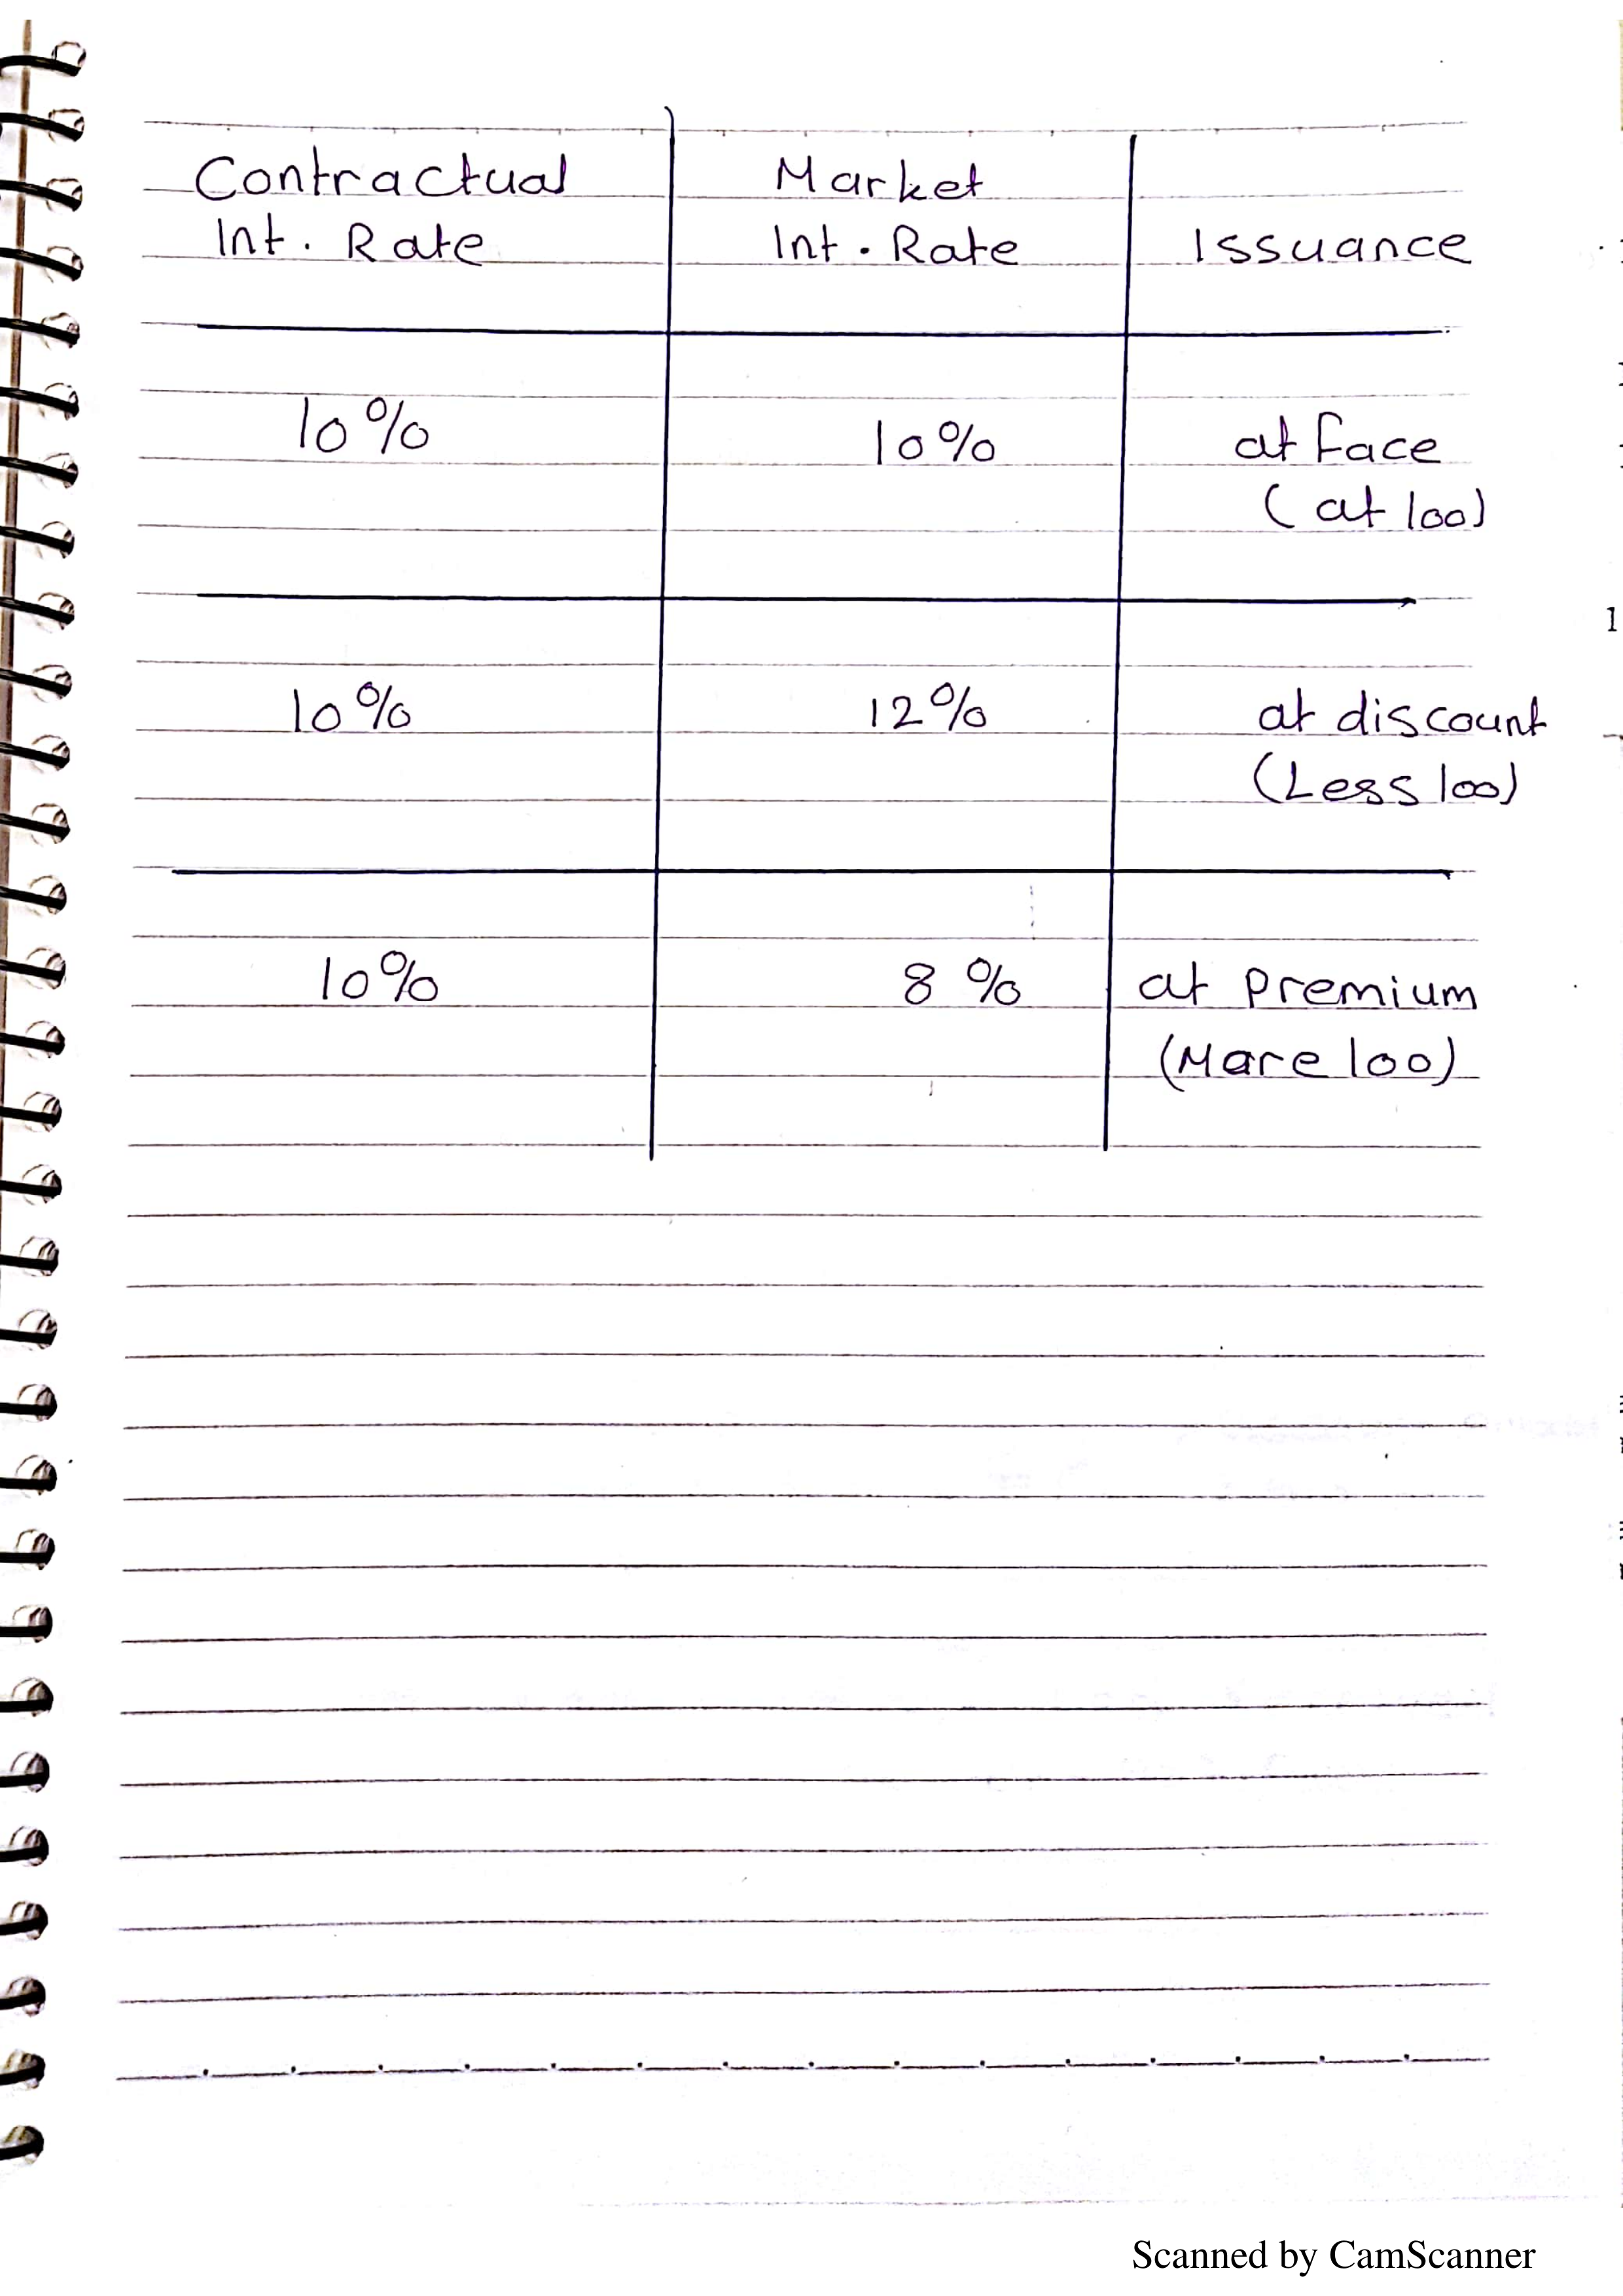 Contractual Market
Int. Rate Int. Rate Issuance
10% 10% at face
(at 100)
10% 12% at discount
(Less 100)
10% 8% at premium
(Mare 100)
Scanned by CamScanner